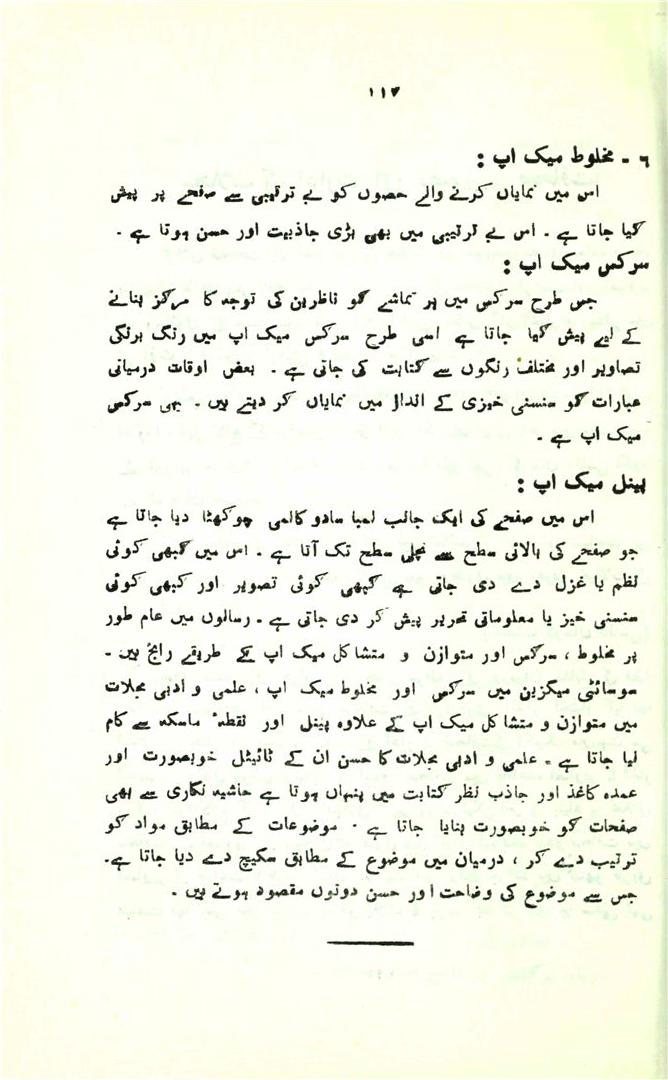 ۱۱۷
۶ - مخلوط میک اپ :
اس میں نمایاں کرنے والے حصوں کو بے ترتیبی سے صفحے پر پیش
کیا جاتا ہے ۔ اس بے ترتیبی میں بھی بڑی جاذبیت اور حسن ہوتا ہے ۔
سرکس میک اپ :
جس طرح سرکس میں ہر تماشے کو ناظرین کی توجہ کا مرکز بنانے
کے لیے پیش کیا جاتا ہے اسی طرح سرکس میک اپ میں رنگ برنگی
تصاویر اور مختلف رنگوں سے کتابت کی جاتی ہے ۔ بعض اوقات درمیانی
عبارات کو سنسنی خیزی کے انداز میں نمایاں کر دیتے ہیں ۔ یہی سرکس
میک اپ ہے ۔
پینل میک اپ :
اس میں صفحے کی ایک جانب لمبا سا دو کالمی چوکھٹا دیا جاتا ہے
جو صفحے کی بالائی سطح سے نچلی سطح تک آتا ہے ۔ اس میں کبھی کوئی
نظم یا غزل دے دی جاتی ہے کبھی کوئی تصویر اور کبھی کوئی
سنسنی خیز یا معلوماتی تحریر پیش کر دی جاتی ہے ۔ رسالوں میں عام طور
پر مخلوط ، سرکس اور متوازن و متشاکل میک اپ کے طریقے رائج ہیں ۔
سوسائٹی میگزین میں سرکس اور مخلوط میک اپ ، علمی و ادبی مجلات
میں متوازن و متشاکل میک اپ کے علاوہ پینل اور نقطۂ ماسکہ سے کام
لیا جاتا ہے ۔ علمی و ادبی مجلات کا حسن ان کے ٹائیٹل خوبصورت اور
عمدہ کاغذ اور جاذب نظر کتابت میں پنہاں ہوتا ہے حاشیہ نگاری سے بھی
صفحات کو خوبصورت بنایا جاتا ہے ۔ موضوعات کے مطابق مواد کو
ترتیب دے کر ، درمیان میں موضوع کے مطابق سکیچ دے دیا جاتا ہے۔
جس سے موضوع کی وضاحت اور حسن دونوں مقصود ہوتے ہیں ۔